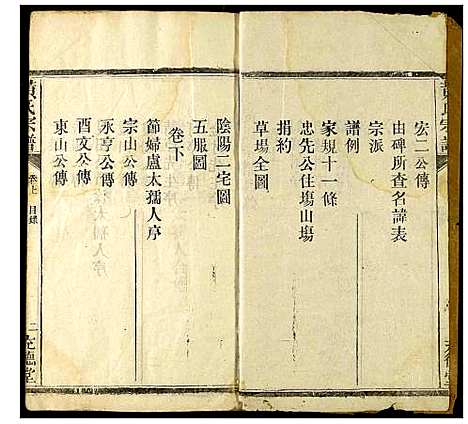 黃氏宗譜
宏二公傳
由碑所查名諱表
宗派
譜例
家規十一條
忠先公住塲山塲
捐約
草場全圖
陰陽二宅圖
五服圖
卷下
節婦盧太孺人序
宗山公傳
永亨公傳
酉文公傳
東山公傳
黃氏宗譜
卷上 目錄
二